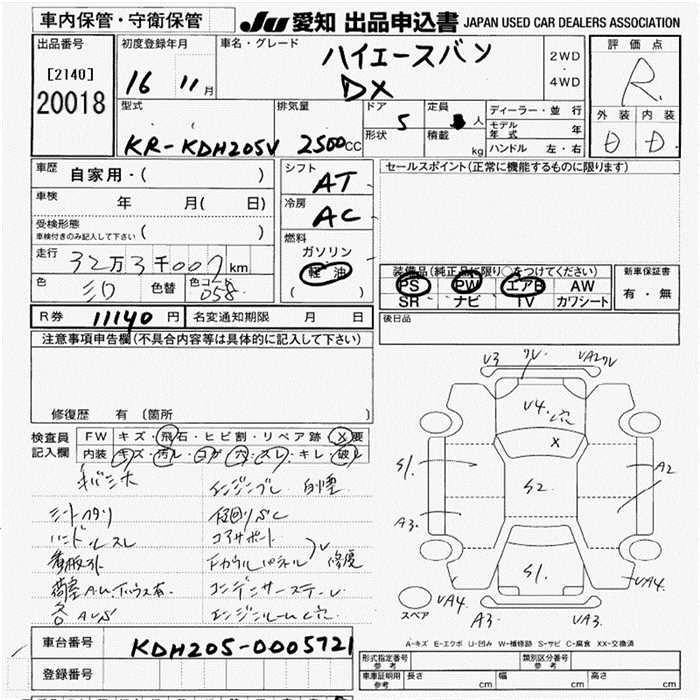 車内保管・守衛保管
JU 愛知 出品申込書 JAPAN USED CAR DEALERS ASSOCIATION
出品番号
[2140]
20018
初度登録年月
16 11月
車名・グレード
ハイエースバン
DX
2WD
・
4WD
評価点
R
外装 内装
D D
型式
KR-KDH205V
排気量
2500CC
ドア
5
形状
定員
人
積載
kg
ディーラー・並行
モデル年式 年
ハンドル 左・右
車歴
自家用・( )
車検
年 月( 日)
受検形態
車検付きのみ記入して下さい ( )
走行
32万3千007km
色
シロ
色替
色コード
058
シフト
AT
冷房
AC
燃料
ガソリン
軽油
( )
セールスポイント(正常に機能するものに限ります)
装備品(純正品に限り○をつけてください)
PS PW エアB AW
SR ナビ TV カワシート
新車保証書
有・無
R券 11140円
名変通知期限 月 日
後日品
注意事項申告欄(不具合内容等は具体的に記入して下さい)
修復歴 有 [箇所 ]
検査員
記入欄
FW キズ・飛石・ヒビ割・リペア跡・X要
内装 キズ・汚レ・コゲ・穴・スレ・キレ・破レ
エンジンブレ 白煙
シートヘタリ
ハンドルスレ
看板外
コアサポート
修復
コンデンサーステーし
エンジンルーム穴
各AUS
V3 クレ VA2クレ
V4. 穴
X
S1.
S2
A2
A3.
S1.
スペア
VA4. VA4.
A3 VA3.
A-キズ E-エクボ U-凹み W-補修跡 S-サビ C-腐食 XX-交換済
車台番号
KDH205-0005721
登録番号
形式指定番号
参考
類別区分番号
参考
車庫証明用
参考
長さ cm 幅 cm 高さ cm